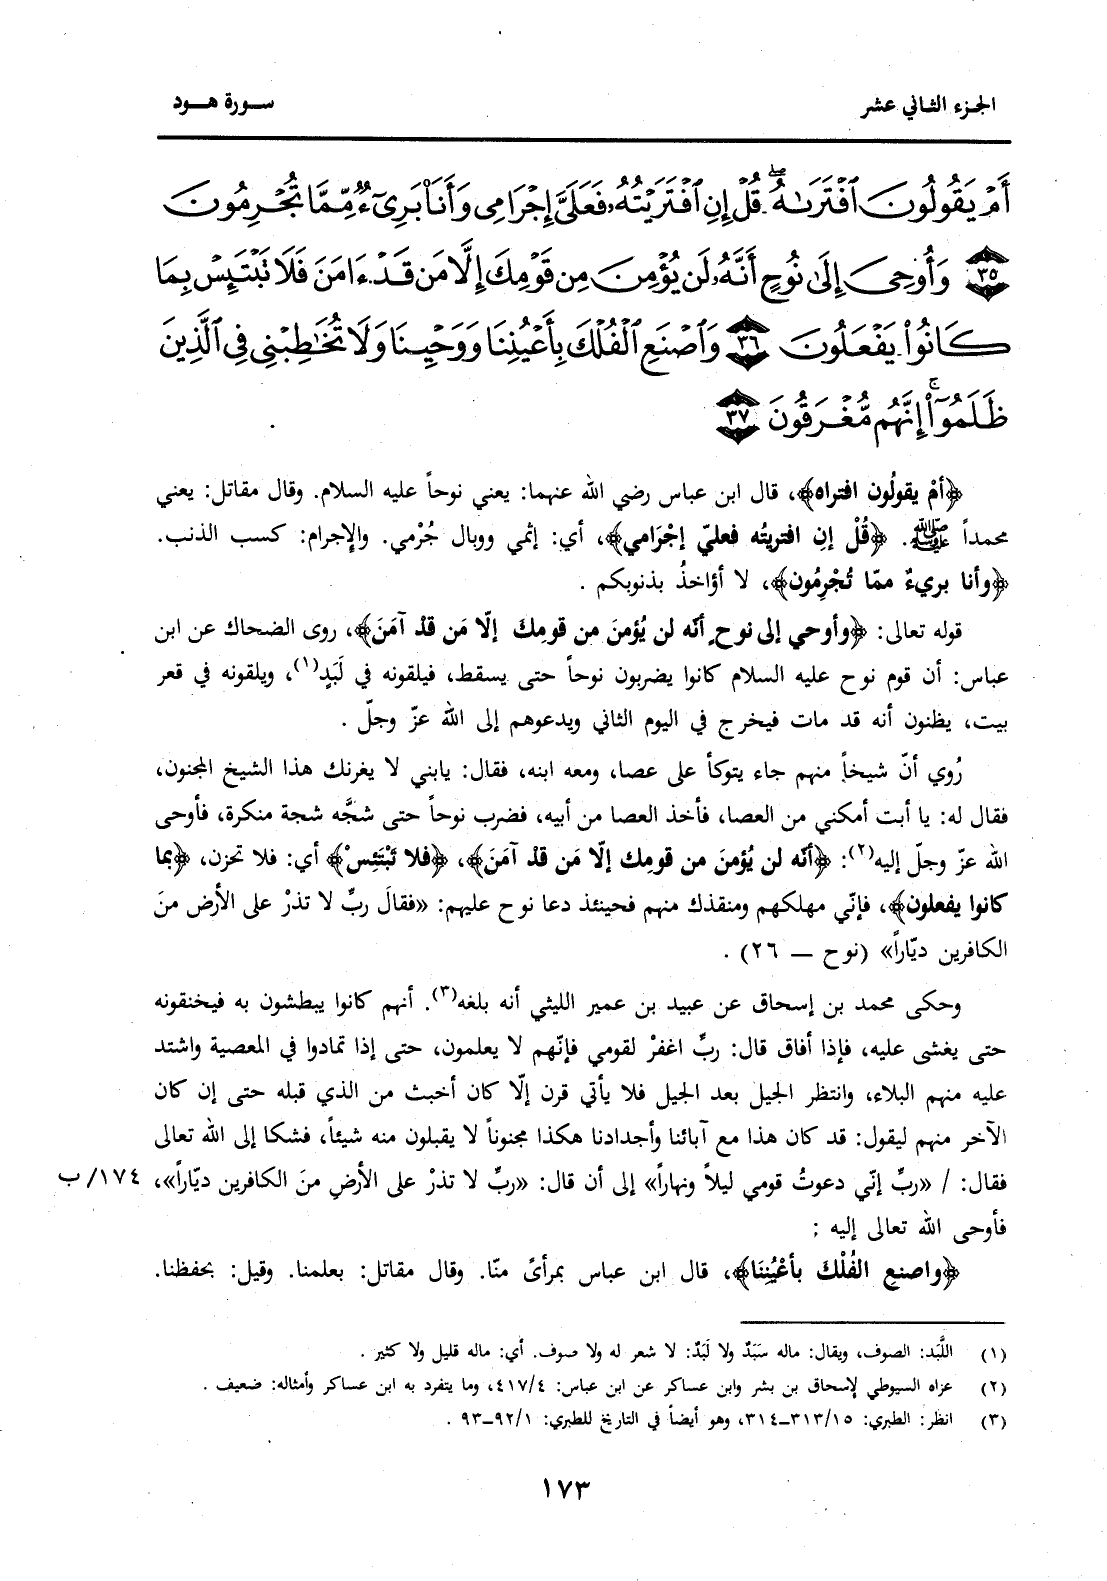 الجزء الثاني عشر
سورة هود
أَمْ يَقُولُونَ ٱفْتَرَىٰهُ ۖ قُلْ إِنِ ٱفْتَرَيْتُهُۥ فَعَلَىَّ إِجْرَامِى وَأَنَا۠ بَرِىٓءٌ مِّمَّا تُجْرِمُونَ
٣٥ وَأُوحِىَ إِلَىٰ نُوحٍ أَنَّهُۥ لَن يُؤْمِنَ مِن قَوْمِكَ إِلَّا مَن قَدْ ءَامَنَ فَلَا تَبْتَئِسْ بِمَا
كَانُوا۟ يَفْعَلُونَ ٣٦ وَٱصْنَعِ ٱلْفُلْكَ بِأَعْيُنِنَا وَوَحْيِنَا وَلَا تُخَٰطِبْنِى فِى ٱلَّذِينَ
ظَلَمُوٓا۟ ۚ إِنَّهُم مُّغْرَقُونَ ٣٧
﴿أمْ يقولُون افتراه﴾، قال ابن عباس رضي الله عنهما: يعني نوحاً عليه السلام. وقال مقاتل: يعني
محمداً ﷺ. ﴿قُلْ إنِ افتريتُه فعليّ إجْرَامي﴾، أي: إثمي ووبال جُرْمي. والإجرام: كسب الذنب.
﴿وأنا بريءٌ ممّا تُجْرِمُون﴾، لا أؤاخذُ بذنوبكم .
قوله تعالى: ﴿وأوحي إلى نوحٍ أنّه لن يُؤمنَ من قومِكَ إلّا مَن قدْ آمَنَ﴾، روى الضحاك عن ابن
عباس: أن قوم نوح عليه السلام كانوا يضربون نوحاً حتى يسقط، فيلقونه في لَبَدٍ(١)، ويلقونه في قعر
بيت، يظنون أنه قد مات فيخرج في اليوم الثاني ويدعوهم إلى الله عزّ وجلّ .
رُوي أنّ شيخاً منهم جاء يتوكأ على عصا، ومعه ابنه، فقال: يابني لا يغرنك هذا الشيخ المجنون،
فقال له: يا أبت أمكني من العصا، فأخذ العصا من أبيه، فضرب نوحاً حتى شجَّه شجة منكرة، فأوحى
الله عزّ وجلّ إليه(٢): ﴿أنّه لن يُؤمنَ من قومِك إلّا مَن قدْ آمَنَ﴾، ﴿فلا تَبْتَئِسْ﴾ أي: فلا تحزن، ﴿بما
كانوا يفعلون﴾، فإنّي مهلكهم ومنقذك منهم فحينئذ دعا نوح عليهم: «فقالَ ربِّ لا تذرْ على الأرض منَ
الكافرين ديّاراً» (نوح — ٢٦) .
وحكى محمد بن إسحاق عن عبيد بن عمير الليثي أنه بلغه(٣). أنهم كانوا يبطشون به فيخنقونه
حتى يغشى عليه، فإذا أفاق قال: ربِّ اغفرْ لقومي فإنّهم لا يعلمون، حتى إذا تمادوا في المعصية واشتد
عليه منهم البلاء، وانتظر الجيل بعد الجيل فلا يأتي قرن إلّا كان أخبث من الذي قبله حتى إن كان
الآخر منهم ليقول: قد كان هذا مع آبائنا وأجدادنا هكذا مجنوناً لا يقبلون منه شيئاً، فشكا إلى الله تعالى
فقال: / «ربِّ إنّي دعوتُ قومي ليلاً ونهاراً» إلى أن قال: «ربِّ لا تذرْ على الأرضِ منَ الكافرين ديّاراً»، ١٧٤/ب
فأوحى الله تعالى إليه ;
﴿واصنعِ الفُلْكَ بأعْيُنِنَا﴾، قال ابن عباس بمرأىً منّا. وقال مقاتل: بعلمنا. وقيل: بحفظنا.
(١) اللَّبَد: الصوف، ويقال: ماله سَبَدٌ ولا لَبَدٌ: لا شعر له ولا صوف. أي: ماله قليل ولا كثير .
(٢) عزاه السيوطي لإسحاق بن بشر وابن عساكر عن ابن عباس: ٤١٧/٤، وما يتفرد به ابن عساكر وأمثاله: ضعيف .
(٣) انظر: الطبري: ٣١٣/١٥–٣١٤، وهو أيضاً في التاريخ للطبري: ٩٢/١–٩٣ .
١٧٣